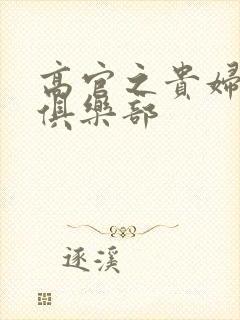 高官之貴婦
俱樂部
逐溪